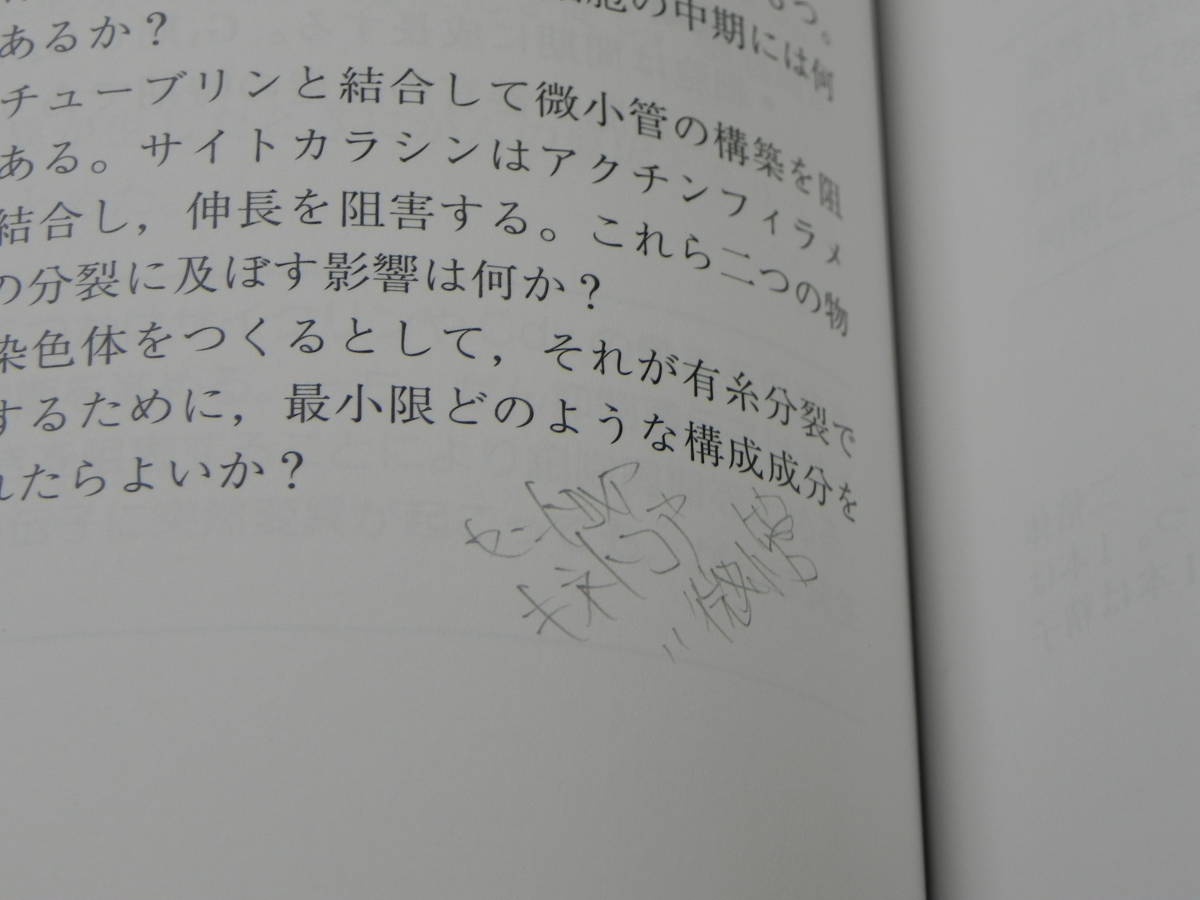 もつ。
胞の中期には何
あるか？
チューブリンと結合して微小管の構築を阻
ある。サイトカラシンはアクチンフィラメ
結合し，伸長を阻害する。これら二つの物
の分裂に及ぼす影響は何か？
染色体をつくるとして，それが有糸分裂で
するために，最小限どのような構成成分を
れたらよいか？
キネトコア